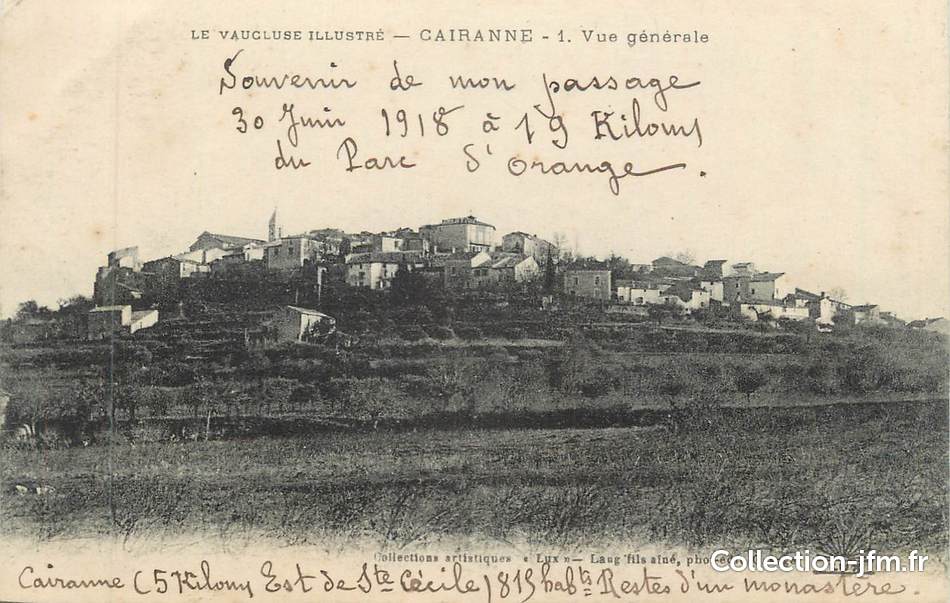 LE VAUCLUSE ILLUSTRÉ — CAIRANNE - 1. Vue générale
Souvenir de mon passage
30 Juin 1918 à 19 Kiloms
du Parc d'Orange .
Collections artistiques « Lux » — Lang fils aîné, phot
Collection-jfm.fr
Cairanne (5 Kiloms Est de Ste Cécile) 815 habts Restes d'un monastère.